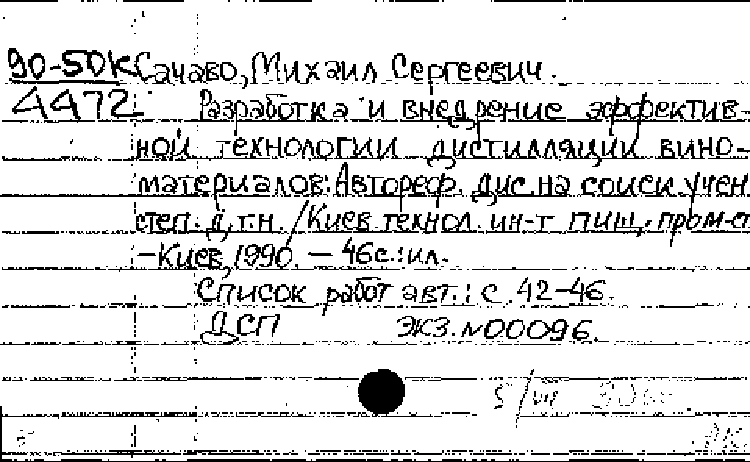 90-50К Сачаво, Михаил Сергеевич.
4472 Разработка и внедрение эффектив-
ной технологии дистилляции вино-
материалов: Автореф. дис. на соиск. учен
степ. д.т.н. / Киев. технол. ин-т пищ. пром-ст
-Киев, 1990. - 46с.: ил.
Список работ авт.: с. 42-46.
ДСП экз. N00096.
5/VII